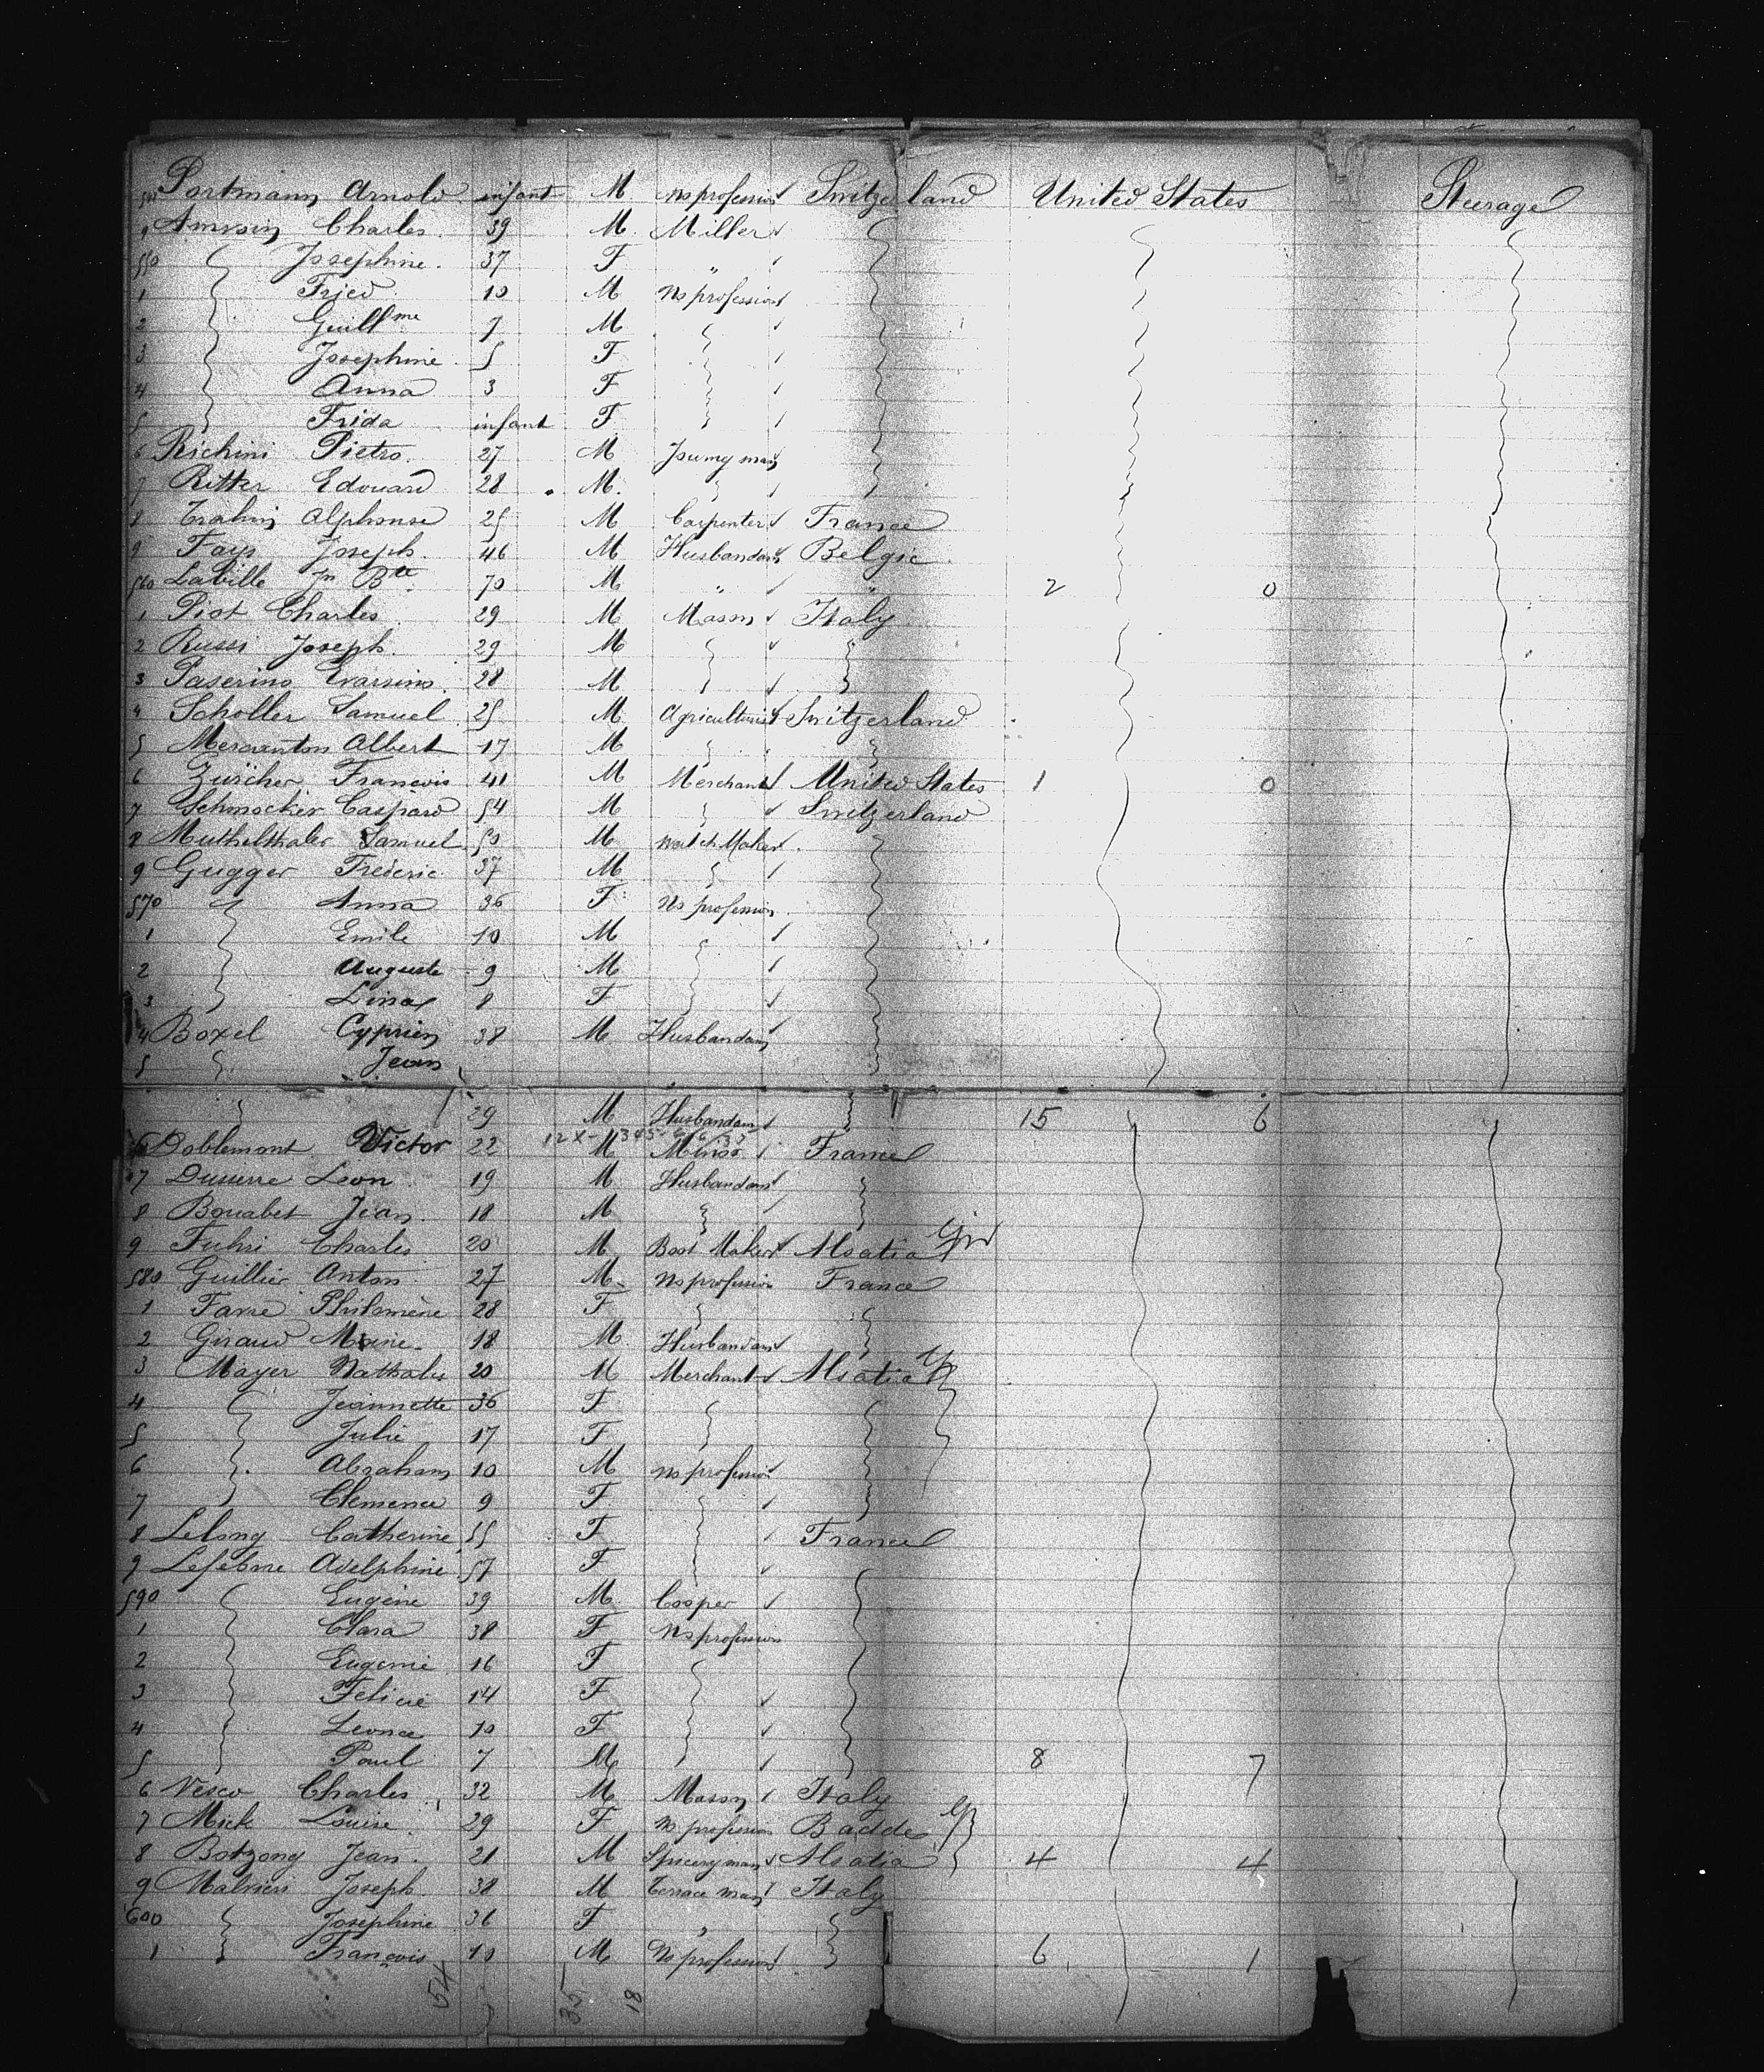 Portmann Arnold infant M No profession Switzerland United States Steerage
9 Amrein Charles 39 M Miller
550 Josephine 37 F "
1 Fried 10 M No profession
2 Guillme 7 M
3 Josephine 5 F
4 Anna 3 F
5 Frida infant F
6 Richini Pietro 27 M Journey man
7 Ritter Edouard 28 M
8 Trahin Alphonse 25 M Carpenter France
9 Fays Joseph 46 M Husbandam Belgic
560 Labille Jn Bte 70 M " " 2 0
1 Piot Charles 29 M Mason Italy
2 Russi Joseph 29 M
3 Paserino Evarsino 28 M
4 Scholler Samuel 25 M Agriculturist Switzerland
5 Mercanton Albert 17 M
6 Zurcher Francois 41 M Merchant United States 1 0
7 Schmocker Caspard 54 M Switzerland
8 Muthelthaler Samuel 50 M Watch Maker
9 Gugger Frederic 37 M
570 Anna 36 F No profession
1 Emile 10 M
2 Auguste 9 M
3 Lina 8 F
4 Boxel Cyprien 38 M Husbandam
5 Jean
29 M Husbandam 15 6
6 Doblemont Victor 22 M Minor France
7 Dusierre Leon 19 M Husbandam
8 Bouabet Jean 18 M
9 Fuhri Charles 20 M Boot Maker Alsatia
580 Guillier Anton 27 M No profession France
1 Favre Philomène 28 F
2 Giraud Marie 18 M Husbandam
3 Mayer Nathalis 20 M Merchant Alsatia
4 Jeannette 36 F
5 Julie 17 F
6 Abraham 10 M No profession
7 Clemence 9 F
8 Lelong Catherine 55 F France
9 Lefebvre Adelphine 57 F
590 Eugène 39 M Cooper
1 Clara 38 F No profession
2 Eugenie 16 F
3 Felicie 14 F
4 Leonce 10 F
5 Paul 7 M 8 7
6 Vesco Charles 32 M Mason Italy
7 Mick Louise 29 F No profession Badde
8 Botzong Jean 21 M Spicery man Alsatia 4 4
9 Malvieri Joseph 38 M Terrace man Italy
600 Josephine 36 F "
1 François 10 M No profession 6 1
54 35 18